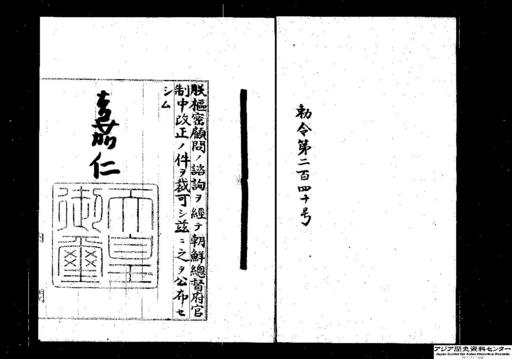 勅令第二百四十号
朕樞密顧問ノ諮詢ヲ經テ朝鮮總督府官
制中改正ノ件ヲ裁可シ茲ニ之ヲ公布セ
シム
嘉仁
天皇
御璽
アジア歴史資料センター
Japan Center for Asian Historical Records